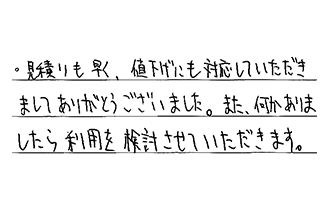 ・見積りも早く、値下げにも対応していただき
ましてありがとうございました。また、何かありま
したら利用を検討させていただきます。